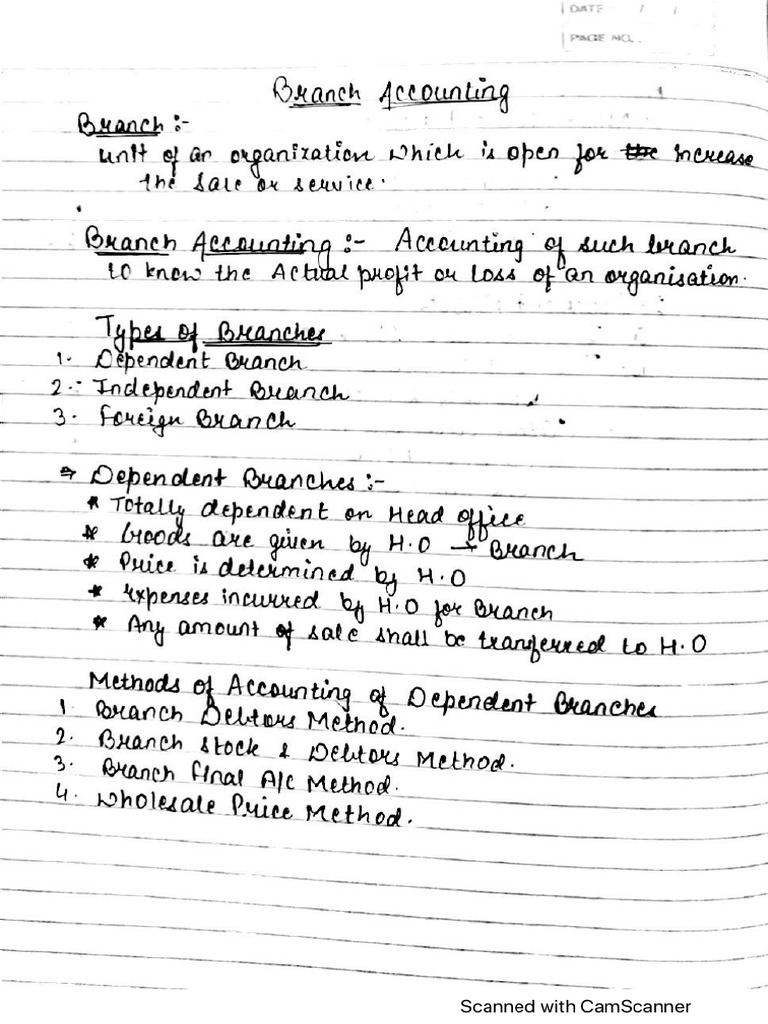 DATE / /
PAGE NO.
Branch Accounting
Branch :-
unit of an organization which is open for the increase
the sale or service.
Branch Accounting :- Accounting of such branch
to know the Actual profit or loss of an organisation.
Types of Branches
1. Dependent Branch
2. Independent Branch
3. Foreign Branch
⇒ Dependent Branches :-
* Totally dependent on Head office
* Goods are given by H.O → Branch
* Price is determined by H.O
* Expenses incurred by H.O for Branch
* Any amount of sale shall be tranferred to H.O
Methods of Accounting of Dependent Branches
1. Branch Debtors Method.
2. Branch stock & Debtors Method.
3. Branch final A/c Method.
4. Wholesale Price Method.
Scanned with CamScanner